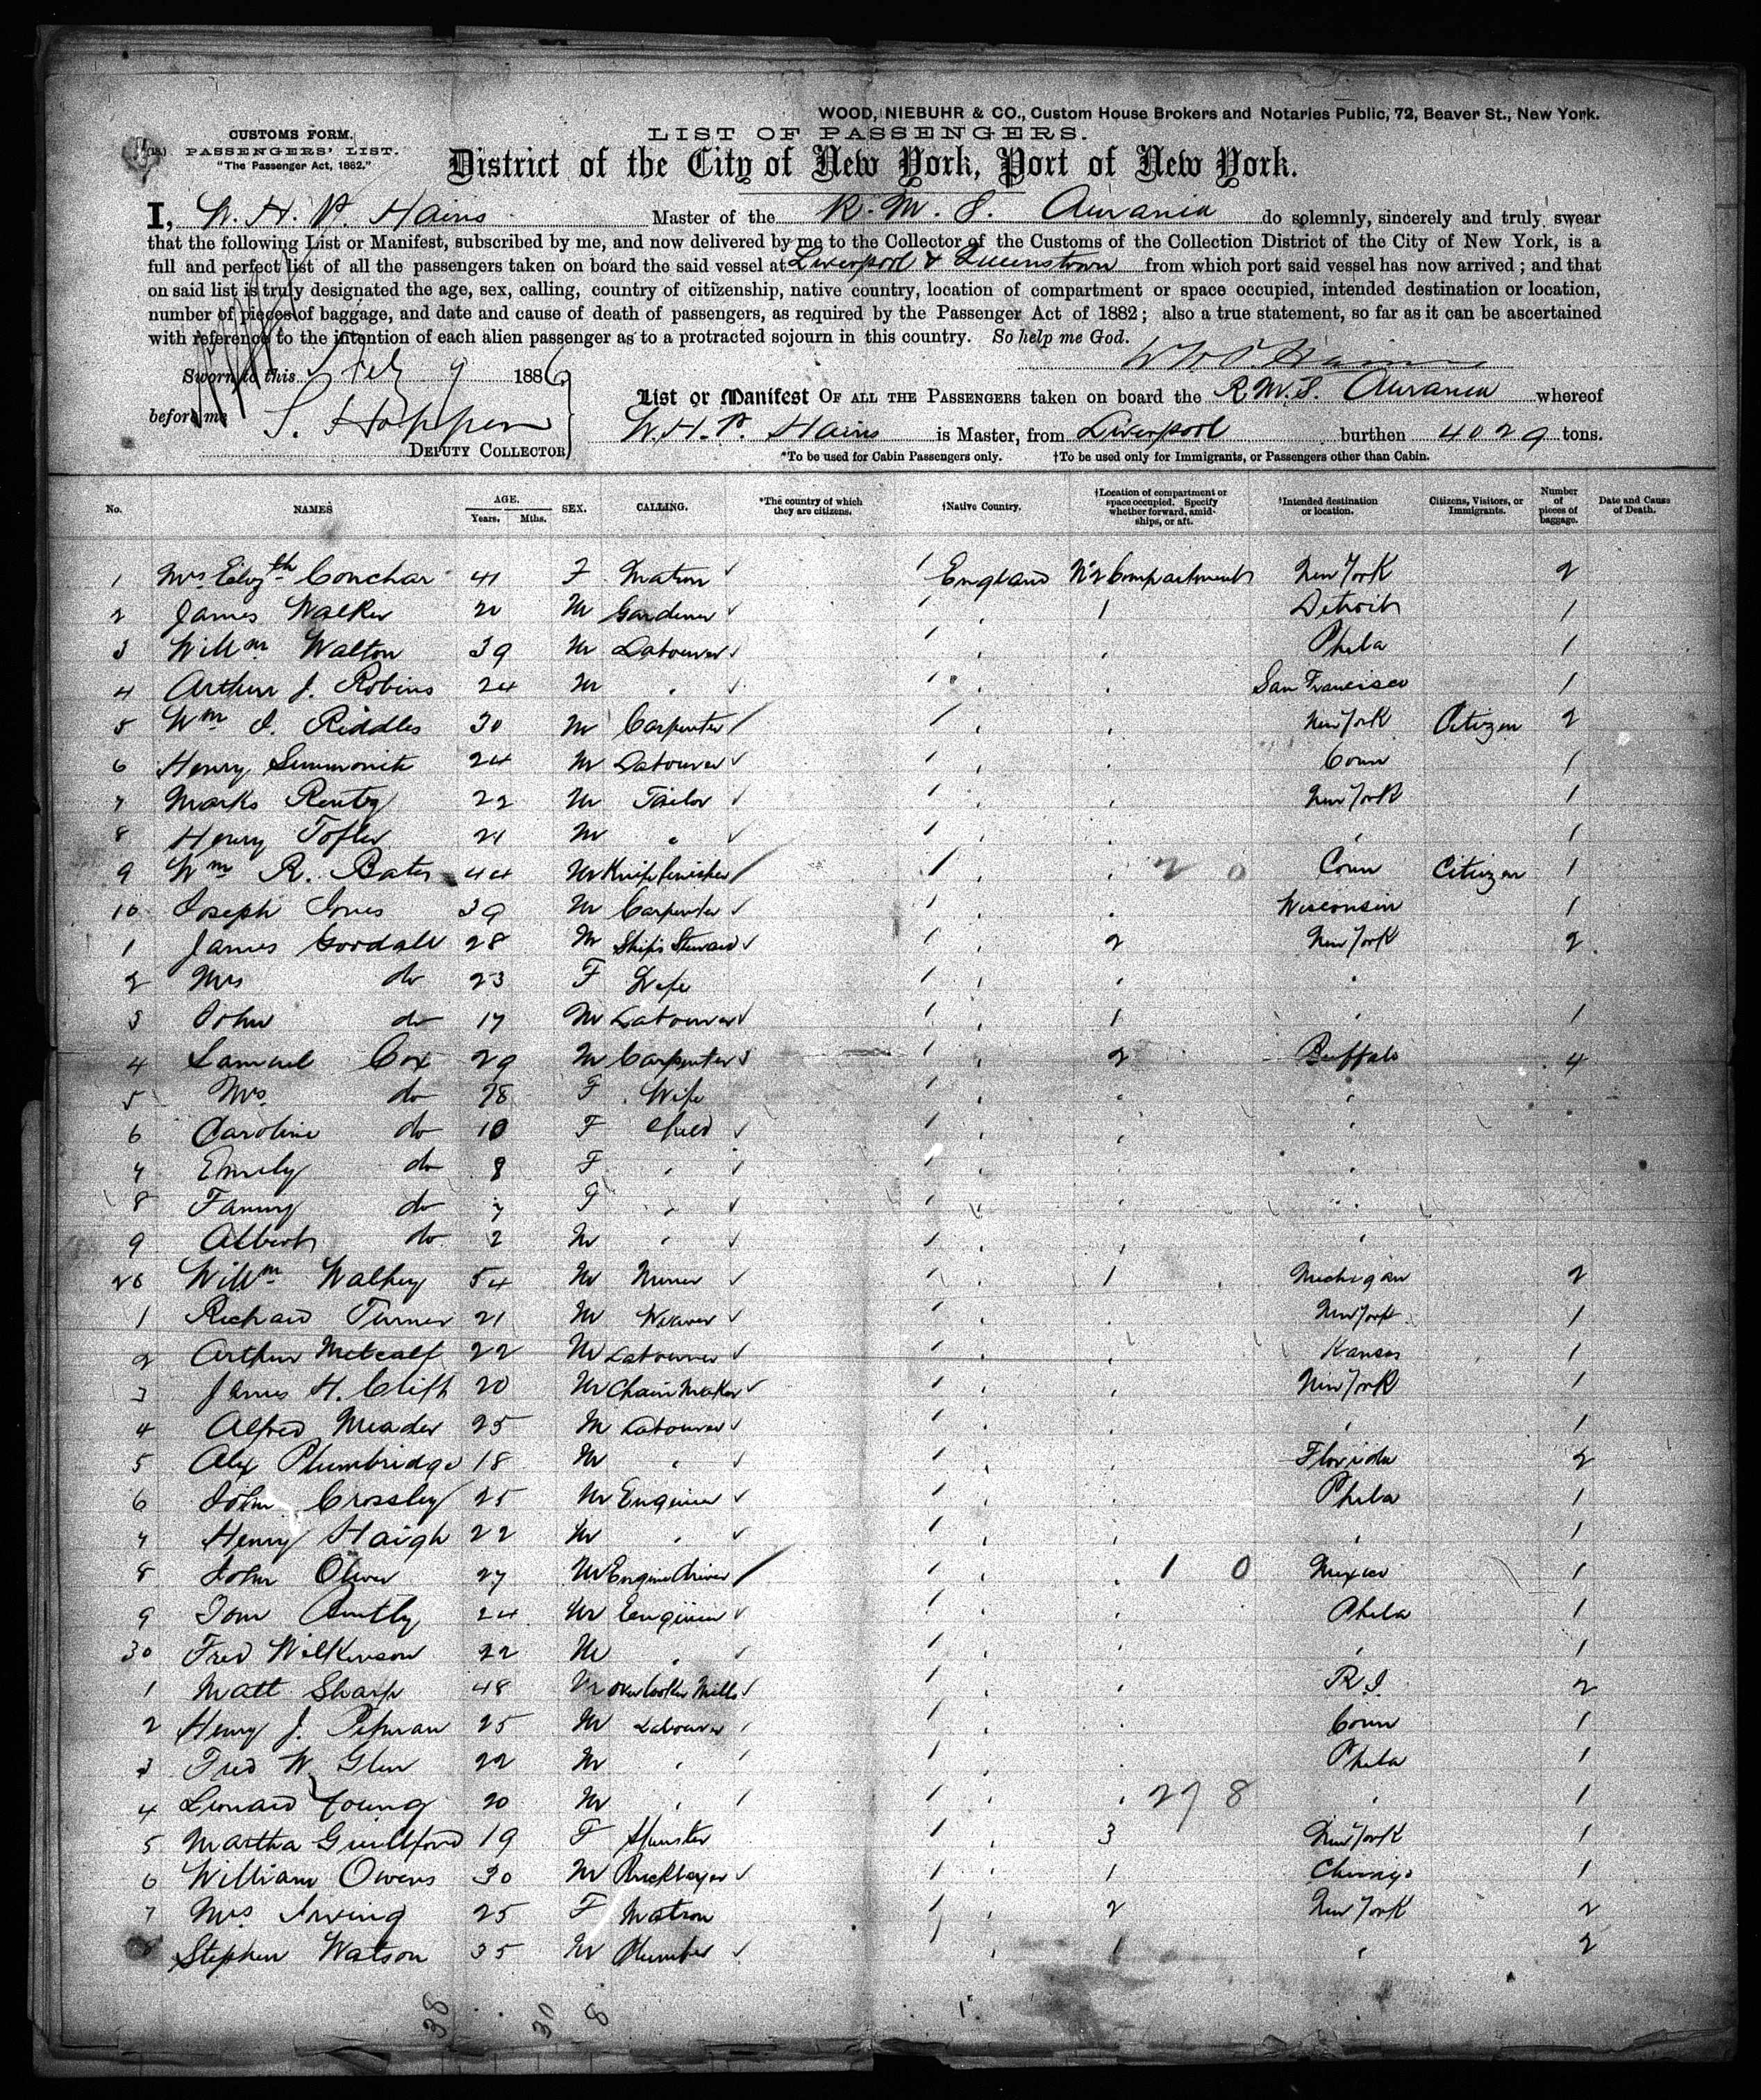 WOOD, NIEBUHR & CO., Custom House Brokers and Notaries Public, 72, Beaver St., New York.
CUSTOMS FORM.
PASSENGERS' LIST.
"The Passenger Act, 1882."
LIST OF PASSENGERS.
District of the City of New York, Port of New York.
I, W. H. P. Hains Master of the R. M. S. Aurania do solemnly, sincerely and truly swear
that the following List or Manifest, subscribed by me, and now delivered by me to the Collector of the Customs of the Collection District of the City of New York, is a
full and perfect list of all the passengers taken on board the said vessel at Liverpool & Queenstown from which port said vessel has now arrived; and that
on said list is truly designated the age, sex, calling, country of citizenship, native country, location of compartment or space occupied, intended destination or location,
number of pieces of baggage, and date and cause of death of passengers, as required by the Passenger Act of 1882; also a true statement, so far as it can be ascertained
with reference to the intention of each alien passenger as to a protracted sojourn in this country. So help me God.
W H P Hains
Sworn to this Feby 9 1886
before me S. Hopper
DEPUTY COLLECTOR
List or Manifest OF ALL THE PASSENGERS taken on board the R.M.S. Aurania whereof
W. H. P. Hains is Master, from Liverpool burthen 4029 tons.
*To be used for Cabin Passengers only. †To be used only for Immigrants, or Passengers other than Cabin.
No. NAMES AGE. Years. Mths. SEX. CALLING. *The country of which they are citizens. †Native Country. †Location of compartment or space occupied. Specify whether forward, amidships, or aft. †Intended destination or location. Citizens, Visitors, or Immigrants. Number of pieces of baggage. Date and Cause of Death.
1 Mrs Elizth Conchar 41 F Matron England No 2 Compartment New York 2
2 James Walker 20 M Gardener 1 Detroit 1
3 Willm Walton 39 M Labourer Phila 1
4 Arthur J. Robins 24 M " San Francisco 1
5 Wm J. Riddles 30 M Carpenter New York Citizen 2
6 Henry Simmonite 24 M Labourer Conn 1
7 Marks 22 M Tailor New York 1
8 Henry Tofler 21 M " " 1
9 Wm R. Bates 44 M Knife finisher 2 0 Conn Citizen 1
10 Joseph Jones 39 M Carpenter Wisconsin 1
1 James Goodall 28 M Ships Steward 2 New York 2
2 Mrs do 23 F Wife "
3 John do 17 M Labourer 1 " 1
4 Samuel Cox 29 M Carpenter 2 Buffalo 4
5 Mrs do 28 F Wife " "
6 Caroline do 10 F Child "
7 Emily do 8 F " "
8 Fanny do 7 F " "
9 Albert do 2 M " "
20 Willm 54 M Miner 1 Michigan 2
1 Richard Turner 21 M Weaver New York 1
2 Arthur Metcalf 22 M Labourer Kansas 1
3 James H. Clift 20 M Chain Maker New York 1
4 Alfred Meader 25 M Labourer " 1
5 Alex Plumbridge 18 M " Florida 2
6 John Crossley 25 M Engineer Phila 1
7 Henry Haigh 22 M " " 1
8 John Oliver 27 M Engine driver 1 0 Mexico 1
9 Tom 24 M Engineer Phila 1
30 Fred Wilkinson 22 M " " 1
1 Matt Sharp 48 M overlooker Mills R. I. 2
2 Henry J. 25 M Labourer Conn 1
3 Fred W. Glen 22 M " Phila 1
4 Leonard Young 20 M " 27 8 " 1
5 Martha Guillford 19 F Spinster 3 New York 1
6 William Owens 30 M Bricklayer 1 Chicago 1
7 Mrs Irving 25 F Matron 2 New York 2
8 Stephen Watson 35 M Plumber 1 " 2
38 30 8